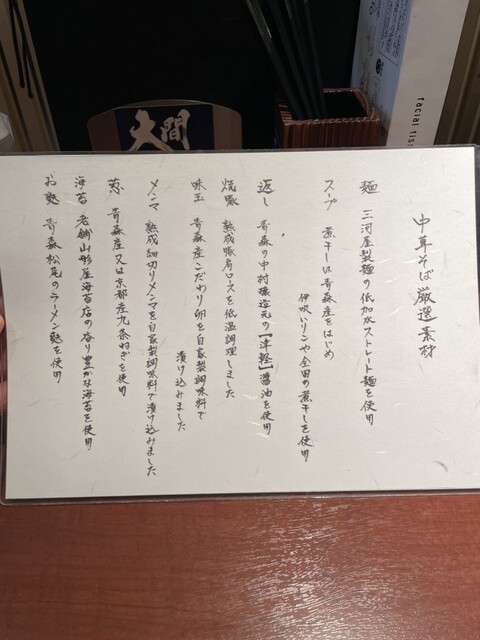 大間
facial tiss
中華そば厳選素材
麺 三河屋製麺の低加水ストレート麺を使用
スープ 煮干しは青森産をはじめ
伊吹いりこや全国の煮干しを使用
返し 青森の中村醸造元の【津軽】醤油を使用
焼豚 熟成豚肩ロースを低温調理しました
味玉 青森産こだわり卵を自家製調味料で
漬け込みました
メンマ 熟成細切りメンマを自家製調味料で漬け込みました
葱 青森産又は京都産九条ねぎを使用
海苔 老舗山形屋海苔店の香り豊かな海苔を使用
お麩 青森松尾のラーメン麩を使用